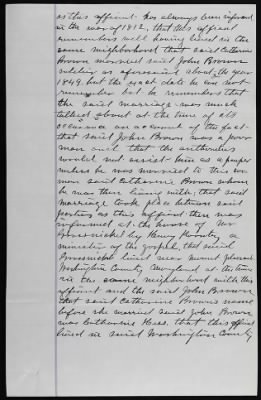 as this affiant has always been informed
in the war of 1812, that this affiant
remembers well having lived in the
same neighborhood that said Catharine
Brown married said John Brown
relating as aforesaid about the year
1849 but the exact date he can not
remember but he remembers that
the said marriage was much
talked about at the time of its
occurance on account of the fact
that said John Brown was a poor
man and that the authorities
would not assist him as a pauper
unless he was married to this wo
man said Catharine Brown whom
he was then living with; that said
marriage took place between said
parties as this affiant then was
informed at the house of Mr
by Henry
minister of the gospel, that said
lived near mount pleasant
Washington County Maryland at the time
in the same neighborhood with this
affiant and the said John Brown
that said Catharine Brown's name
before she married said John Brown
was Catharine Hees, that this affiant
lived in said Washington County